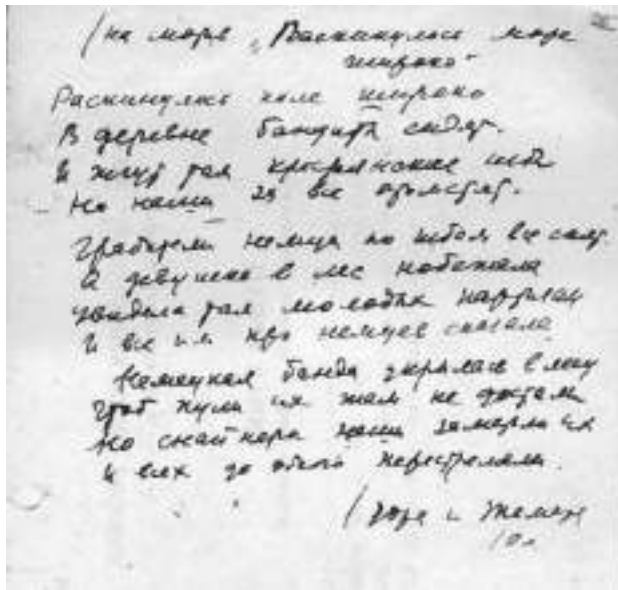 /на мотив „Раскинулось море
широко"
Раскинулось поле широко
В деревне бандиты сидят.
И жгут там крестьянские избы
Но наши за все отомстят.
Грабители немцы по избам все
А девушка в лес побежала
увидела там молодых партизан
И все им про немцев сказала
Немецкая банда укрылась в лесу
Чтоб пули их там не достали
Но снайпера наши заметили их
И всех до одного перестреляли.